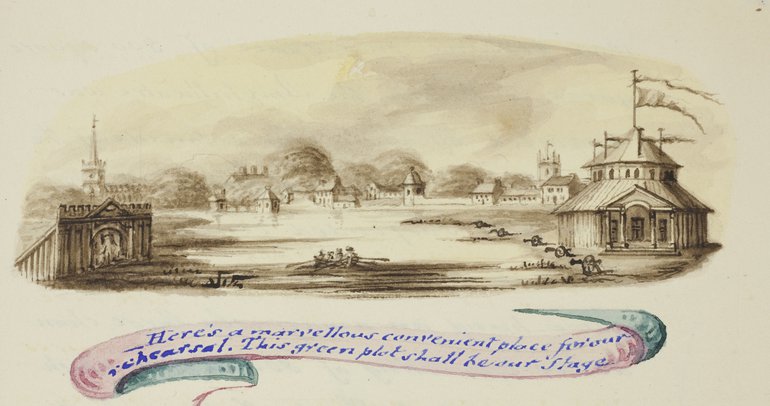 Here's a marvellous convenient place for our
rehearsal. This green plot shall be our Stage